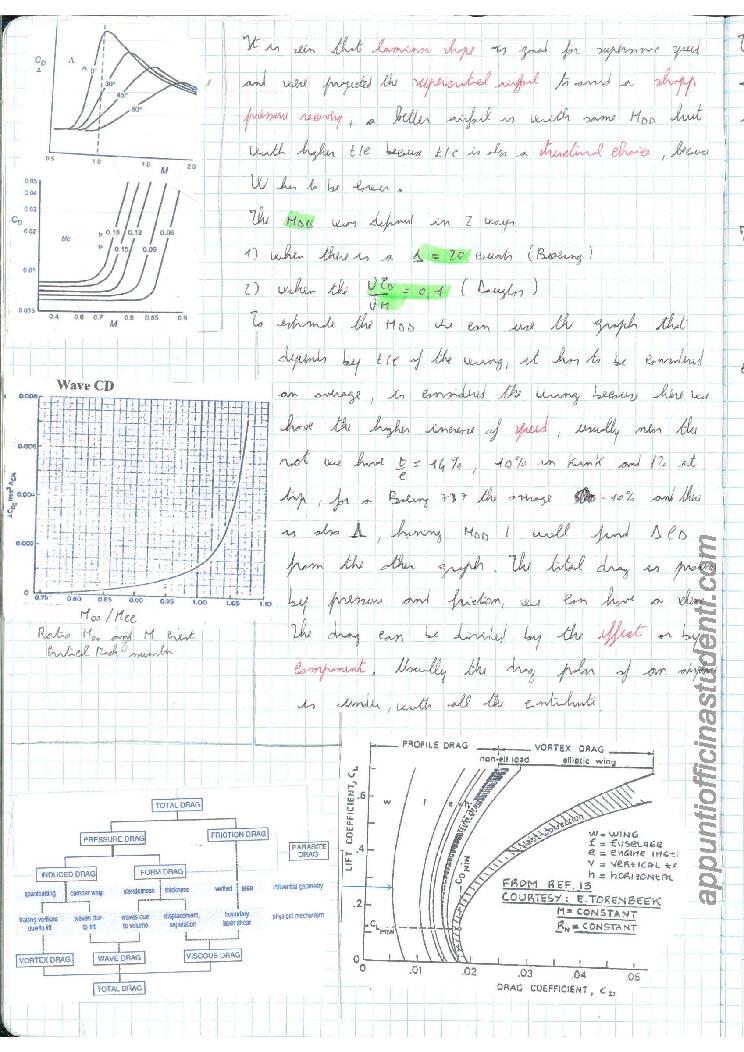 C_D
Λ
Λ 0°
30°
45°
60°
0.5 1.0 1.5 2.0
M
It is seen that laminar shape is good for supersonic speed
and were projected the supercritical airfoil to avoid a sharp
pressure recovery, a better airfoil is with same M_DD but
with higher t/c because t/c is also a structural choice, because
W has to be lower.
The M_DD was defined in 2 ways
1) when there is a Δ = 20 counts (Boeing)
2) when the ∂C_D/∂M = 0,1 (Douglas)
To estimate the M_DD we can use the graph that
depends by t/c of the wing, it has to be considered
an average, is considered the wing because here we
have the higher increase of speed, usually near the
root we have t/c = 14%, 10% in Kink and at
tip, for a Boeing 737 the average 10% and this
is also Λ, having M_DD I will find ΔC_D
from the other graph. The total drag is
by pressure and friction, we can have a
The drag can be divided by the effect or by
component. Usually the drag polar of an
is under, with all the contribute.
0.05
0.04
0.03
C_D
0.02
0.01
0.005
t/c
0.18 0.12 0.09
0.15 0.09 0.06
0.4 0.6 0.7 0.8 0.85 0.9
M
Wave CD
0.008
0.006
0.004
0.002
0.75 0.80 0.85 0.90 0.95 1.00 1.05 1.10
M∞/Mcc
Ratio M∞ and M Crest
Critical Mach number
TOTAL DRAG
PRESSURE DRAG
FRICTION DRAG
PARASITE DRAG
INDUCED DRAG
FORM DRAG
spanloading camber wrap slenderness thickness wetted area influential geometry
trailing vortices due to lift
waves due to lift
waves due to volume
displacement, separation
boundary layer shear
physical mechanism
VORTEX DRAG
WAVE DRAG
VISCOUS DRAG
TOTAL DRAG
PROFILE DRAG VORTEX DRAG
non-ell load elliptic wing
LIFT COEFFICIENT, C_L
.6
.4
.2
0
w f e v h
CD MIN
C_L MIN
W = WING
f = FUSELAGE
e = ENGINE
V = VERTICAL
h = HORIZONTAL
FROM REF. 13
COURTESY: E.TORENBEEK
M = CONSTANT
R_N = CONSTANT
0 .01 .02 .03 .04 .05
DRAG COEFFICIENT, C_D
appuntiofficinastudenti.com